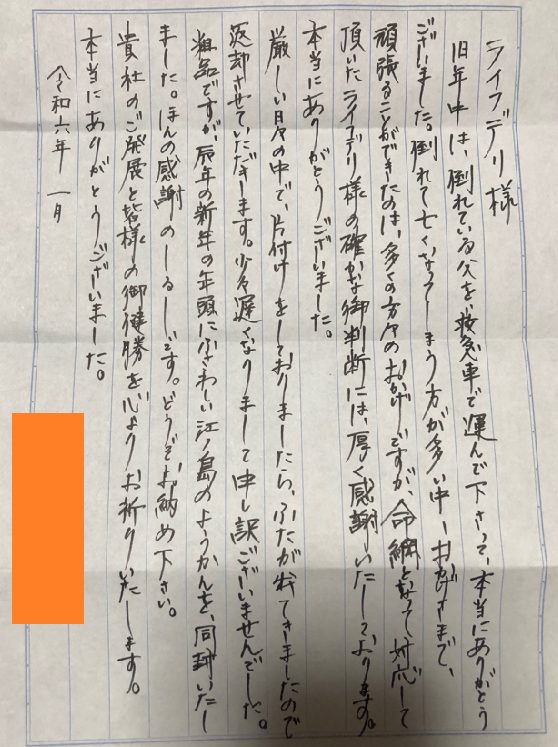 ライフデリ様
旧年中は、倒れている父を救急車で運んで下さって、本当にありがとう
ございました。倒れて亡くなってしまう方が多い中、おかげさまで、
頑張ることができたのは、多くの方々のおかげですが、命綱となって、対応して
頂いたライフデリ様の確かな御判断には、厚く感謝いたしております。
本当にありがとうございました。
厳しい日々の中で、片付けをしておりましたら、ふたが出てきましたので
返却させていただきます。少々遅くなりまして申し訳ございませんでした。
粗品ですが、辰年の新年の年頭にふさわしい江ノ島のようかんを、同封いたし
ました。ほんの感謝のしるしです。どうぞお納め下さい。
貴社のご発展と皆様の御健勝を心よりお祈りいたします。
本当にありがとうございました。
令和六年 一月